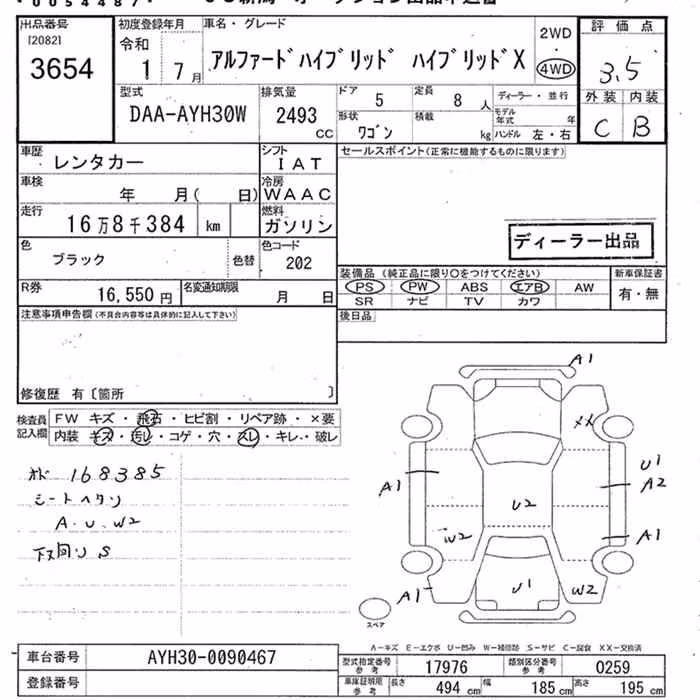 出品番号
[2082]
3654
初度登録年月
令和
1 7月
車名・グレード
アルファードハイブリッド ハイブリッドX
2WD
・
4WD
評価点
3.5
外装 内装
C B
型式
DAA-AYH30W
排気量
2493
CC
ドア
5
定員
8 人
形状
ワゴン
積載
kg
ディーラー・並行
モデル年式 年
ハンドル 左・右
車歴
レンタカー
シフト
IAT
車検
年 月( 日)
冷房
WAAC
走行
16万8千384 km
燃料
ガソリン
色
ブラック
色替
色コード
202
R券
16,550円
名変通知期限
月 日
セールスポイント(正常に機能するものに限ります)
ディーラー出品
装備品 (純正品に限り○をつけてください)
PS PW ABS エアB AW
SR ナビ TV カワ
新車保証書
有・無
後日品
注意事項申告欄(不具合内容等は具体的に記入して下さい)
修復歴 有〔箇所 〕
検査員
記入欄
FW キズ・飛石・ヒビ割・リペア跡・×要
内装 キズ・汚レ・コゲ・穴・スレ・キレ・破レ
オド 168385
シートヘタリ
A.U.W2
下回り S
A1
XX
A1
U1
A2
U2
W2
A1
A1
U1
W2
スペア
A-キズ E-エクボ U-凹み W-補修跡 S-サビ C-腐食 XX-交換済
車台番号
AYH30-0090467
登録番号
型式指定番号
参考
17976
類別区分番号
参考
0259
車庫証明用
参考
長さ 494 cm
幅 185 cm
高さ 195 cm